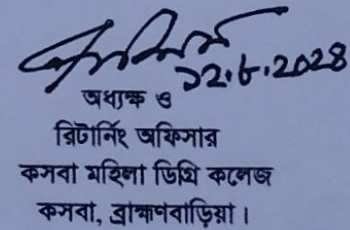 ১২.৮.২০২৪
অধ্যক্ষ ও
রিটার্নিং অফিসার
কসবা মহিলা ডিগ্রি কলেজ
কসবা, ব্রাহ্মণবাড়িয়া।